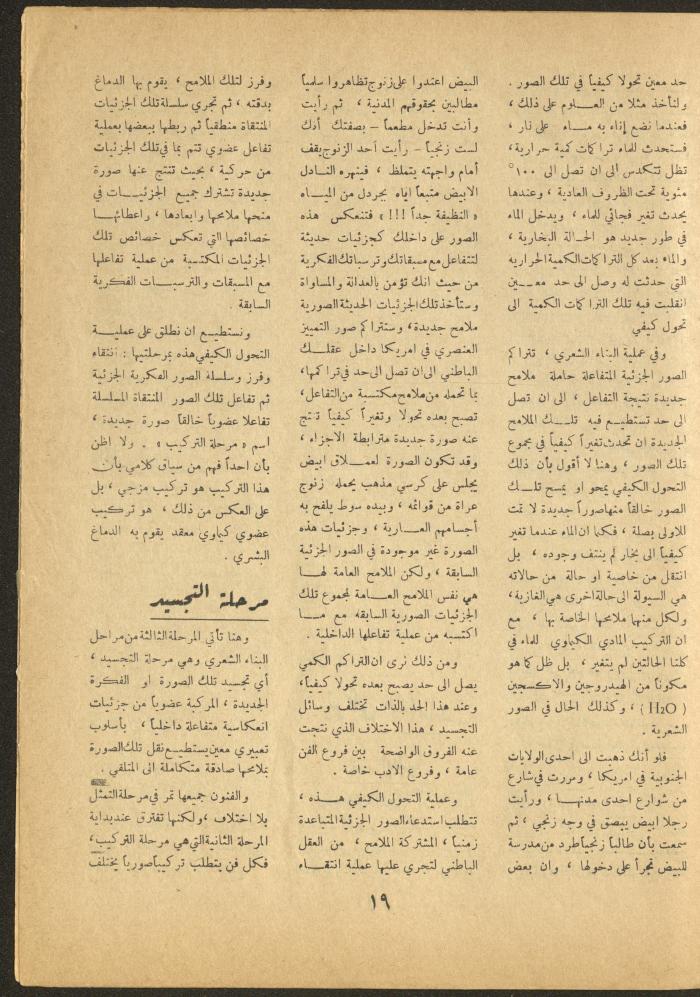 حد معين تحولا كيفياً في تلك الصور .
ولنأخذ مثلا من العلوم على ذلك ،
فعندما نضع إناء به ماء على نار ،
فستحدث للماء تراكمات كمية حرارية ،
تظل تتكدس الى ان تصل الى ١٠٠°
مئوية تحت الظروف العادية ، وعندها
يحدث تغير فجائي للماء ، ويدخل الماء
في طور جديد هو الحالة البخارية ،
والماء بعد كل التراكمات الكمية الحراريه
التي حدثت له وصل الى حد معين
انقلبت فيه تلك التراكمات الكمية الى
تحول كيفي
وفي عملية البناء الشعري ، تتراكم
الصور الجزئية المتفاعلة حاملة ملامح
جديدة نتيجة التفاعل ، الى ان تصل
الى حد تستطيع فيه تلك الملامح
الجديدة ان تحدث تغيراً كيفياً في مجموع
تلك الصور ، وهنا لا أقول بأن ذلك
التحول الكيفي يمحو او يمسح تلك
الصور خالقاً منها صوراً جديدة لا تمت
للاولى بصلة ، فكما ان الماء عندما تغير
كيفياً الى بخار لم ينتف وجوده ، بل
انتقل من خاصية او حالة من حالاته
هي السيولة الى حالة اخرى هي الغازية ،
ولكل منها ملامحها الخاصة بها ، مع
ان التركيب المادي الكيماوي للماء في
كلتا الحالتين لم يتغير ، بل ظل كما هو
مكوناً من الهيدروجين والاكسجين
( H2O ) ، وكذلك الحال في الصور
الشعرية .
فلو أنك ذهبت الى احدى الولايات
الجنوبية في امريكا ، ومررت في شارع
من شوارع احدى مدنها ، ورأيت
رجلا ابيض يبصق في وجه زنجي ، ثم
سمعت بأن طالباً زنجياً طرد من مدرسة
للبيض تجرأ على دخولها ، وان بعض
البيض اعتدوا على زنوج تظاهروا سلمياً
مطالبين بحقوقهم المدنية ، ثم رأيت
وأنت تدخل مطعماً – بصفتك أنك
لست زنجياً – رأيت أحد الزنوج يقف
أمام واجهته يتملظ ، فينهره النادل
الابيض متبعاً اياه بجردل من المياه
« النظيفة جداً !!! » فتنعكس هذه
الصور على داخلك كجزئيات حديثة
لتتفاعل مع مسبقاتك وترسباتك الفكرية
من حيث انك تؤمن بالعدالة والمساواة
وستأخذ تلك الجزئيات الحديثة الصورية
ملامح جديدة ، وستتراكم صور التمييز
العنصري في امريكا داخل عقلك
الباطني الى ان تصل الى حد في تراكمها ،
بما تحمله من ملامح مكتسبة من التفاعل ،
تصبح بعده تحولا وتغيراً كيفياً تنتج
عنه صورة جديدة مترابطة الاجزاء ،
وقد تكون الصورة لعملاق ابيض
يجلس على كرسي مذهب يحمله زنوج
عراة من قوائمه ، وبيده سوط يلفح به
أجسامهم العارية ، وجزئيات هذه
الصورة غير موجودة في الصور الجزئية
السابقة ، ولكن الملامح العامة لها
هي نفس الملامح العامة لمجموع تلك
الجزئيات الصورية السابقه مع ما
اكتسبه من عملية تفاعلها الداخلية .
ومن ذلك نرى ان التراكم الكمي
يصل الى حد يصبح بعده تحولا كيفياً ،
وعند هذا الحد بالذات تختلف وسائل
التجسيد ، هذا الاختلاف الذي نتجت
عنه الفروق الواضحة بين فروع الفن
عامة ، وفروع الادب خاصة .
وعملية التحول الكيفي هذه ،
تتطلب استدعاء الصور الجزئية المتباعدة
زمنياً ، المشتركة الملامح ، من العقل
الباطني لتجري عليها عملية انتقاء
وفرز لتلك الملامح ، يقوم بها الدماغ
بدقته ، ثم تجري سلسلة تلك الجزئيات
المنتقاة منطقياً ثم ربطها ببعضها بعملية
تفاعل عضوي تتم بما في تلك الجزئيات
من حركية ، بحيث تنتج عنها صورة
جديدة تشترك جميع الجزئيات في
منحها ملامحها وابعادها ، واعطائها
خصائصها التي تعكس خصائص تلك
الجزئيات المكتسبة من عملية تفاعلها
مع المسبقات والترسبات الفكرية
السابقة .
ونستطيع ان نطلق على عملية
التحول الكيفي هذه بمرحلتيها : انتقاء
وفرز وسلسلة الصور الفكرية الجزئية
ثم تفاعل تلك الصور المنتقاة المسلسلة
تفاعلا عضوياً خالقاً صورة جديدة ،
اسم « مرحلة التركيب » . ولا اظن
بأن احداً فهم من سياق كلامي بأن
هذا التركيب هو تركيب مزجي ، بل
على العكس من ذلك ، هو تركيب
عضوي كيماوي معقد يقوم به الدماغ
البشري .
مرحلة التجسيد
وهنا تأتي المرحلة الثالثة من مراحل
البناء الشعري وهي مرحلة التجسيد ،
أي تجسيد تلك الصورة او الفكرة
الجديدة ، المركبة عضوياً من جزئيات
انعكاسية متفاعلة داخلياً ، بأسلوب
تعبيري معين يستطيع نقل تلك الصورة
بملامحها صادقة متكاملة الى المتلقي .
والفنون جميعها تمر في مرحلة التمثل
بلا اختلاف ، ولكنها تفترق عند بداية
المرحلة الثانية التي هي مرحلة التركيب ،
فكل فن يتطلب تركيباً صورياً يختلف
١٩